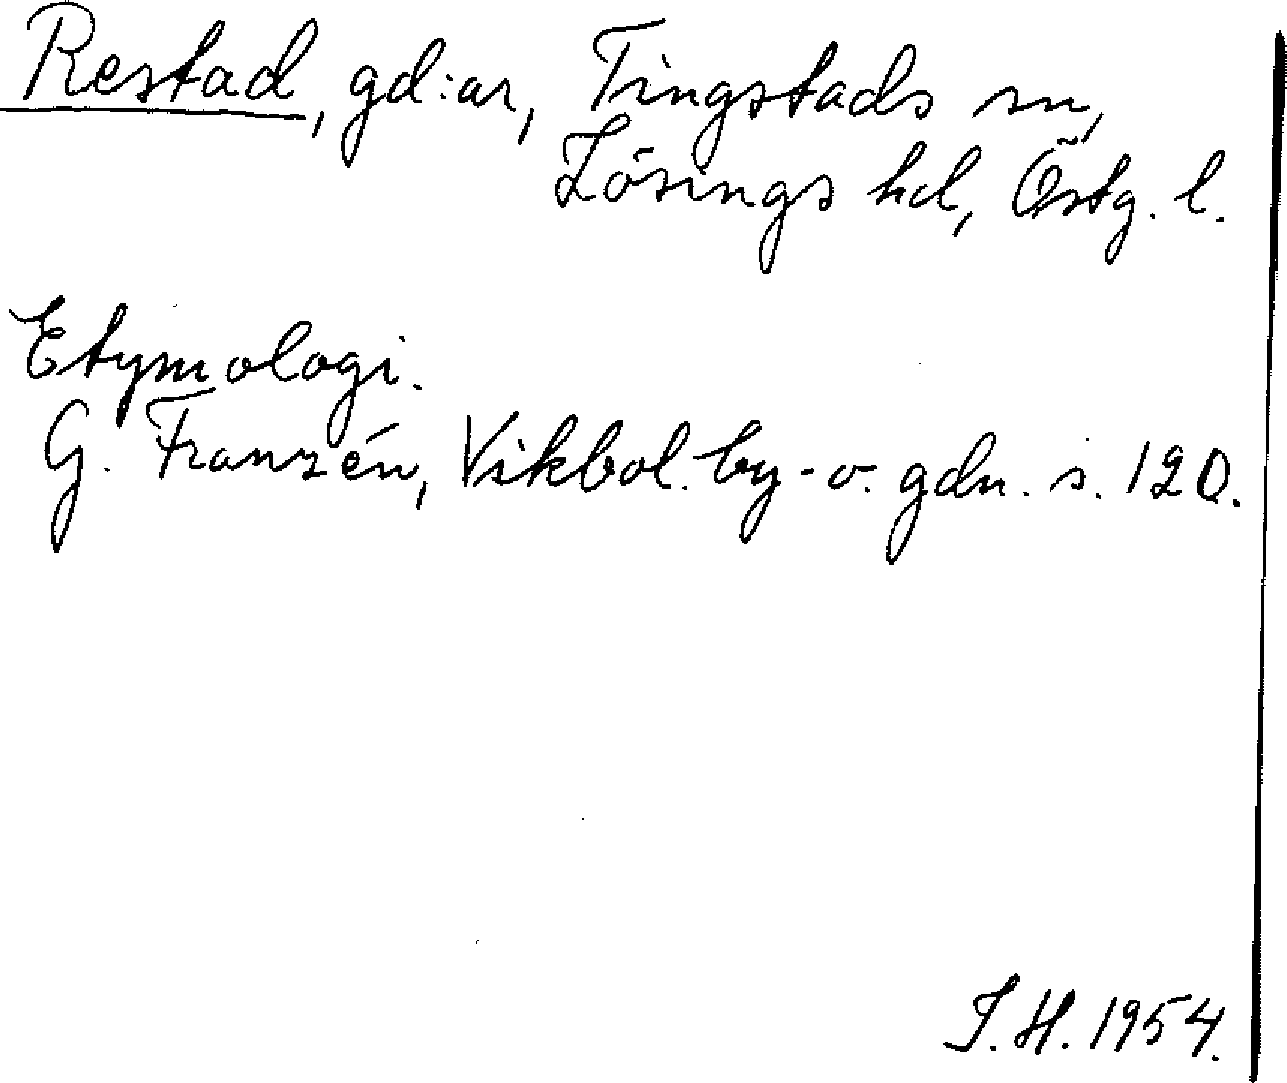 Restad, gd:ar, Tingstads sn,
Lösings hd, Östg. l.
Etymologi.
G. Franzén, Vikbol. by- o. gdn. s. 120.
I. H. 1954.